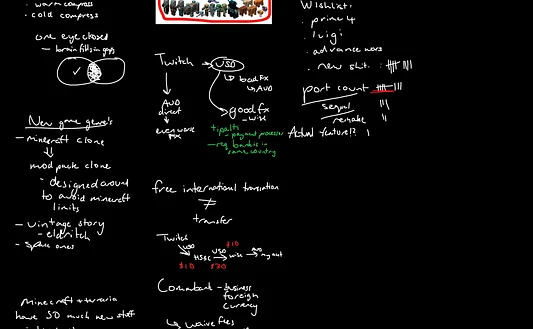 · warm compress
· cold compress
one eye closed
- brain fills in gaps
New game genre's
- minecraft clone
modpack clone
- designed around
to avoid minecraft
limits
- vintage story
- eldritch
- space ones
minecraft + terraria
have SO much new stuff
Twitch → USD
bad FX
AUD
AUD
direct
even worse
FX
good fx
- wise
tipalti
- payment processor
- req bank is in
same country
free international transaction
≠
transfer
Twitch
USD
HSBC
USD
wise
AUD
my acct
$10
$20
$10
Commbank - business
foreign
currency
waive fees
Wishlist:
· prime 4
· luigi
· advance wars
· new shit:
port count
sequel
remake
Actual feature!?